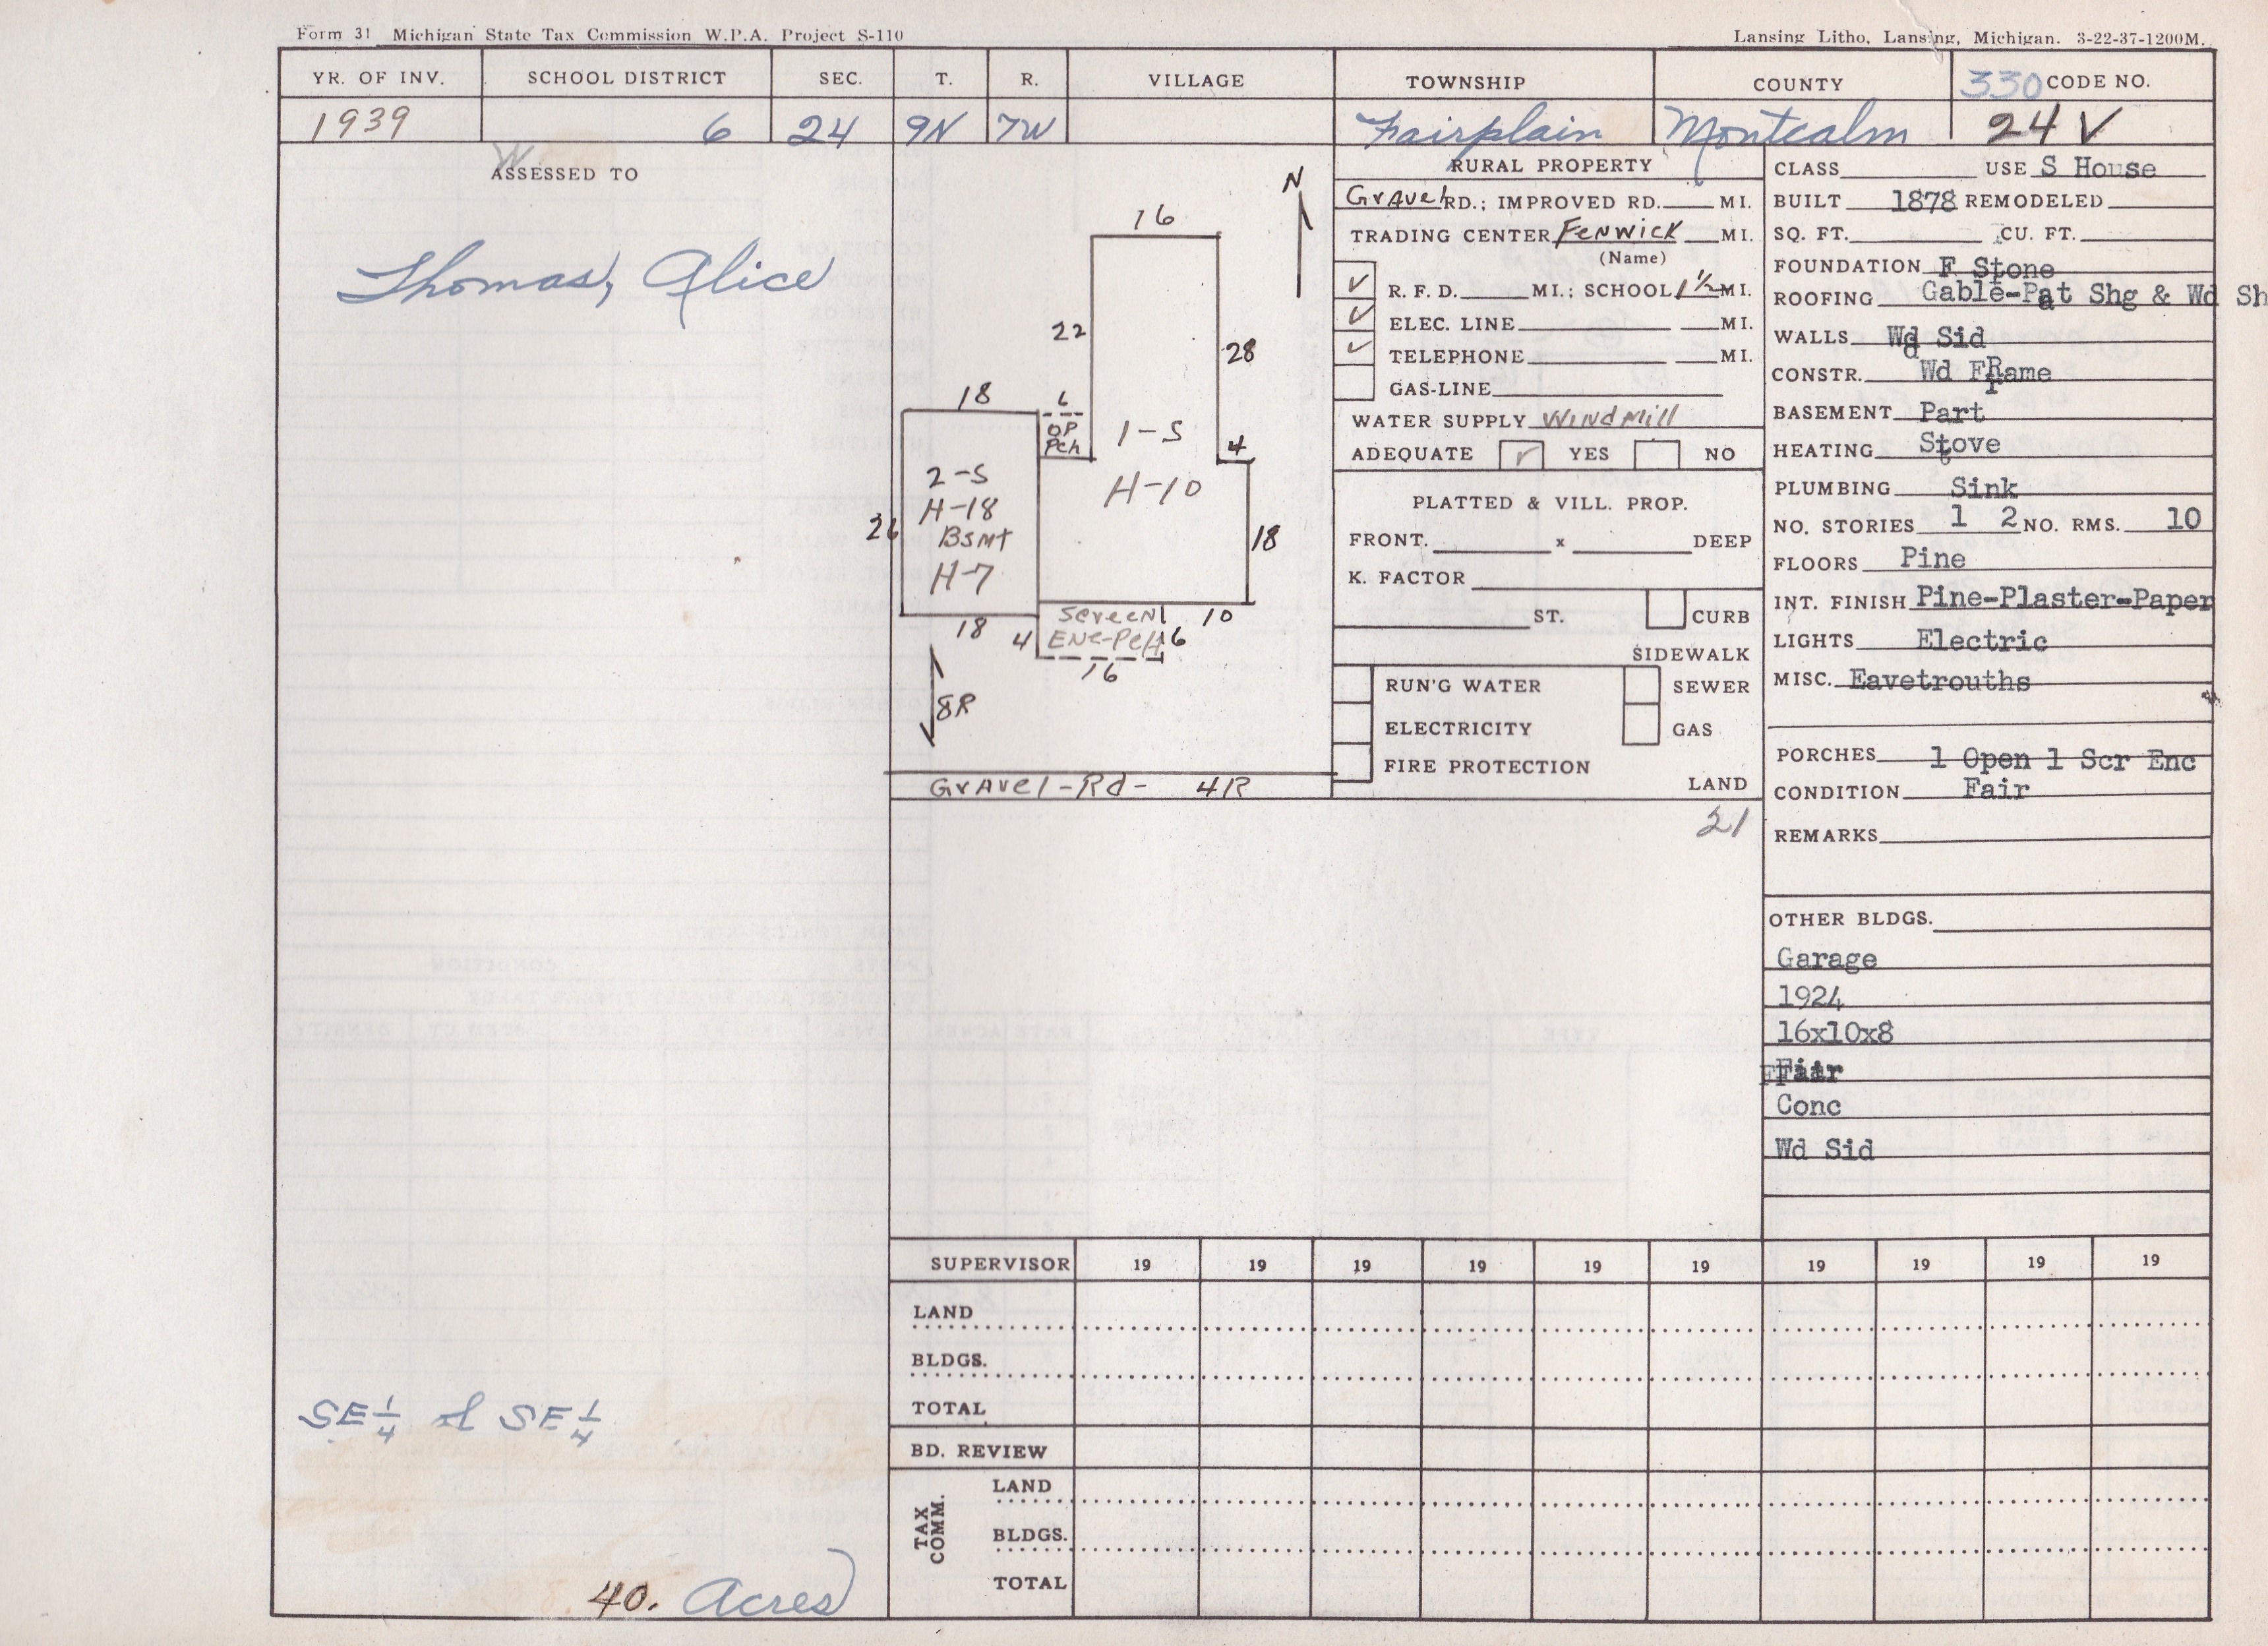 Form 31 Michigan State Tax Commission W.P.A. Project S-110
Lansing Litho, Lansing, Michigan. 3-22-37-1200M.
YR. OF INV. SCHOOL DISTRICT SEC. T. R. VILLAGE TOWNSHIP COUNTY 330 CODE NO.
1939 6 24 9N 7W Fairplain Montcalm 24 V
W
ASSESSED TO
Thomas, Alice
SE 1/4 of SE 1/4
40. Acres
N
16
22
28
18
6
OP
Pch
1-S
4
H-10
2-S
H-18
Bsmt
H-7
26
18
18
4
Screen
Enc-Pch
6
10
16
8R
Gravel-Rd- 4R
RURAL PROPERTY
Gravel RD.; IMPROVED RD. MI.
TRADING CENTER Fenwick MI.
(Name)
✓ R. F. D. MI.; SCHOOL 1 1/2 MI.
✓ ELEC. LINE MI.
✓ TELEPHONE MI.
GAS-LINE
WATER SUPPLY Windmill
ADEQUATE ✓ YES NO
PLATTED & VILL. PROP.
FRONT. x DEEP
K. FACTOR
ST. CURB
SIDEWALK
RUN'G WATER SEWER
ELECTRICITY GAS
FIRE PROTECTION
LAND
21
CLASS USE S House
BUILT 1878 REMODELED
SQ. FT. CU. FT.
FOUNDATION F Stone
ROOFING Gable-Pat Shg & Wd Sh
WALLS Wd Sid
CONSTR. Wd Frame
BASEMENT Part
HEATING Stove
PLUMBING Sink
NO. STORIES 1 2 NO. RMS. 10
FLOORS Pine
INT. FINISH Pine-Plaster-Paper
LIGHTS Electric
MISC. Eavetrouths
PORCHES 1 Open 1 Scr Enc
CONDITION Fair
REMARKS
OTHER BLDGS.
Garage
1924
16x10x8
Fair
Conc
Wd Sid
SUPERVISOR 19 19 19 19 19 19 19 19 19 19
LAND
BLDGS.
TOTAL
BD. REVIEW
TAX COMM.
LAND
BLDGS.
TOTAL